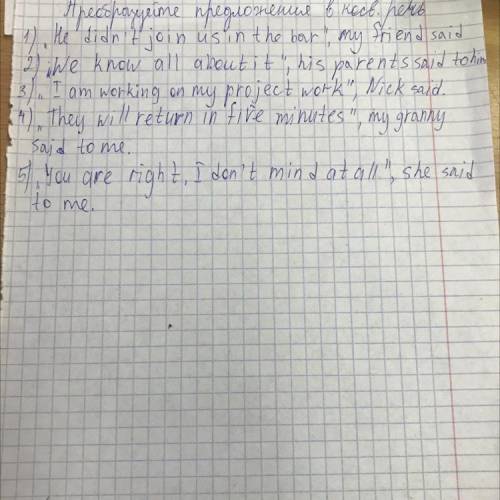 Преобразуйте предложения в косв. речь
1) „He didn't join us in the bar", my friend said
2) „We know all about it", his parents said to him
3) „I am working on my project work", Nick said.
4) „They will return in five minutes", my granny
said to me.
5) „You are right, I don't mind at all", she said
to me.